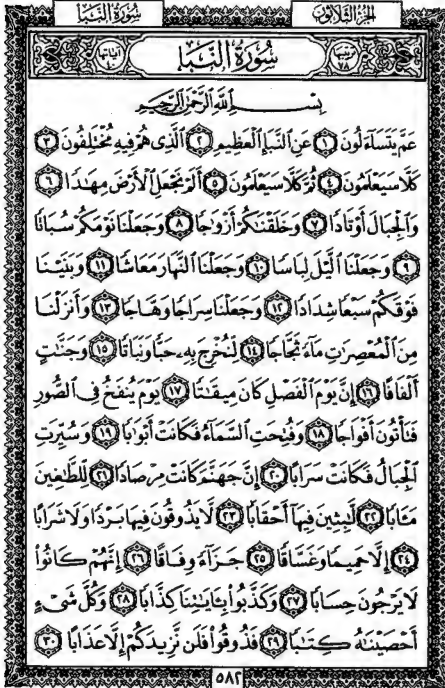 الجزء الثلاثون
سورة النبأ
سورة النبإ
ترتيبها ٧٨
آياتها
بِسْمِ اللَّهِ الرَّحْمَٰنِ الرَّحِيمِ
عَمَّ يَتَسَاءَلُونَ ١ عَنِ النَّبَإِ الْعَظِيمِ ٢ الَّذِي هُمْ فِيهِ مُخْتَلِفُونَ ٣
كَلَّا سَيَعْلَمُونَ ٤ ثُمَّ كَلَّا سَيَعْلَمُونَ ٥ أَلَمْ نَجْعَلِ الْأَرْضَ مِهَٰدًا ٦
وَالْجِبَالَ أَوْتَادًا ٧ وَخَلَقْنَٰكُمْ أَزْوَٰجًا ٨ وَجَعَلْنَا نَوْمَكُمْ سُبَاتًا
٩ وَجَعَلْنَا الَّيْلَ لِبَاسًا ١٠ وَجَعَلْنَا النَّهَارَ مَعَاشًا ١١ وَبَنَيْنَا
فَوْقَكُمْ سَبْعًا شِدَادًا ١٢ وَجَعَلْنَا سِرَاجًا وَهَّاجًا ١٣ وَأَنزَلْنَا
مِنَ الْمُعْصِرَٰتِ مَاءً ثَجَّاجًا ١٤ لِّنُخْرِجَ بِهِۦ حَبًّا وَنَبَاتًا ١٥ وَجَنَّٰتٍ
أَلْفَافًا ١٦ إِنَّ يَوْمَ الْفَصْلِ كَانَ مِيقَٰتًا ١٧ يَوْمَ يُنفَخُ فِي الصُّورِ
فَتَأْتُونَ أَفْوَاجًا ١٨ وَفُتِحَتِ السَّمَاءُ فَكَانَتْ أَبْوَٰبًا ١٩ وَسُيِّرَتِ
الْجِبَالُ فَكَانَتْ سَرَابًا ٢٠ إِنَّ جَهَنَّمَ كَانَتْ مِرْصَادًا ٢١ لِّلطَّٰغِينَ
مَـَٔابًا ٢٢ لَّٰبِثِينَ فِيهَا أَحْقَابًا ٢٣ لَّا يَذُوقُونَ فِيهَا بَرْدًا وَلَا شَرَابًا
٢٤ إِلَّا حَمِيمًا وَغَسَّاقًا ٢٥ جَزَاءً وِفَاقًا ٢٦ إِنَّهُمْ كَانُوا
لَا يَرْجُونَ حِسَابًا ٢٧ وَكَذَّبُوا بِـَٔايَٰتِنَا كِذَّابًا ٢٨ وَكُلَّ شَيْءٍ
أَحْصَيْنَٰهُ كِتَٰبًا ٢٩ فَذُوقُوا فَلَن نَّزِيدَكُمْ إِلَّا عَذَابًا ٣٠
٥٨٢